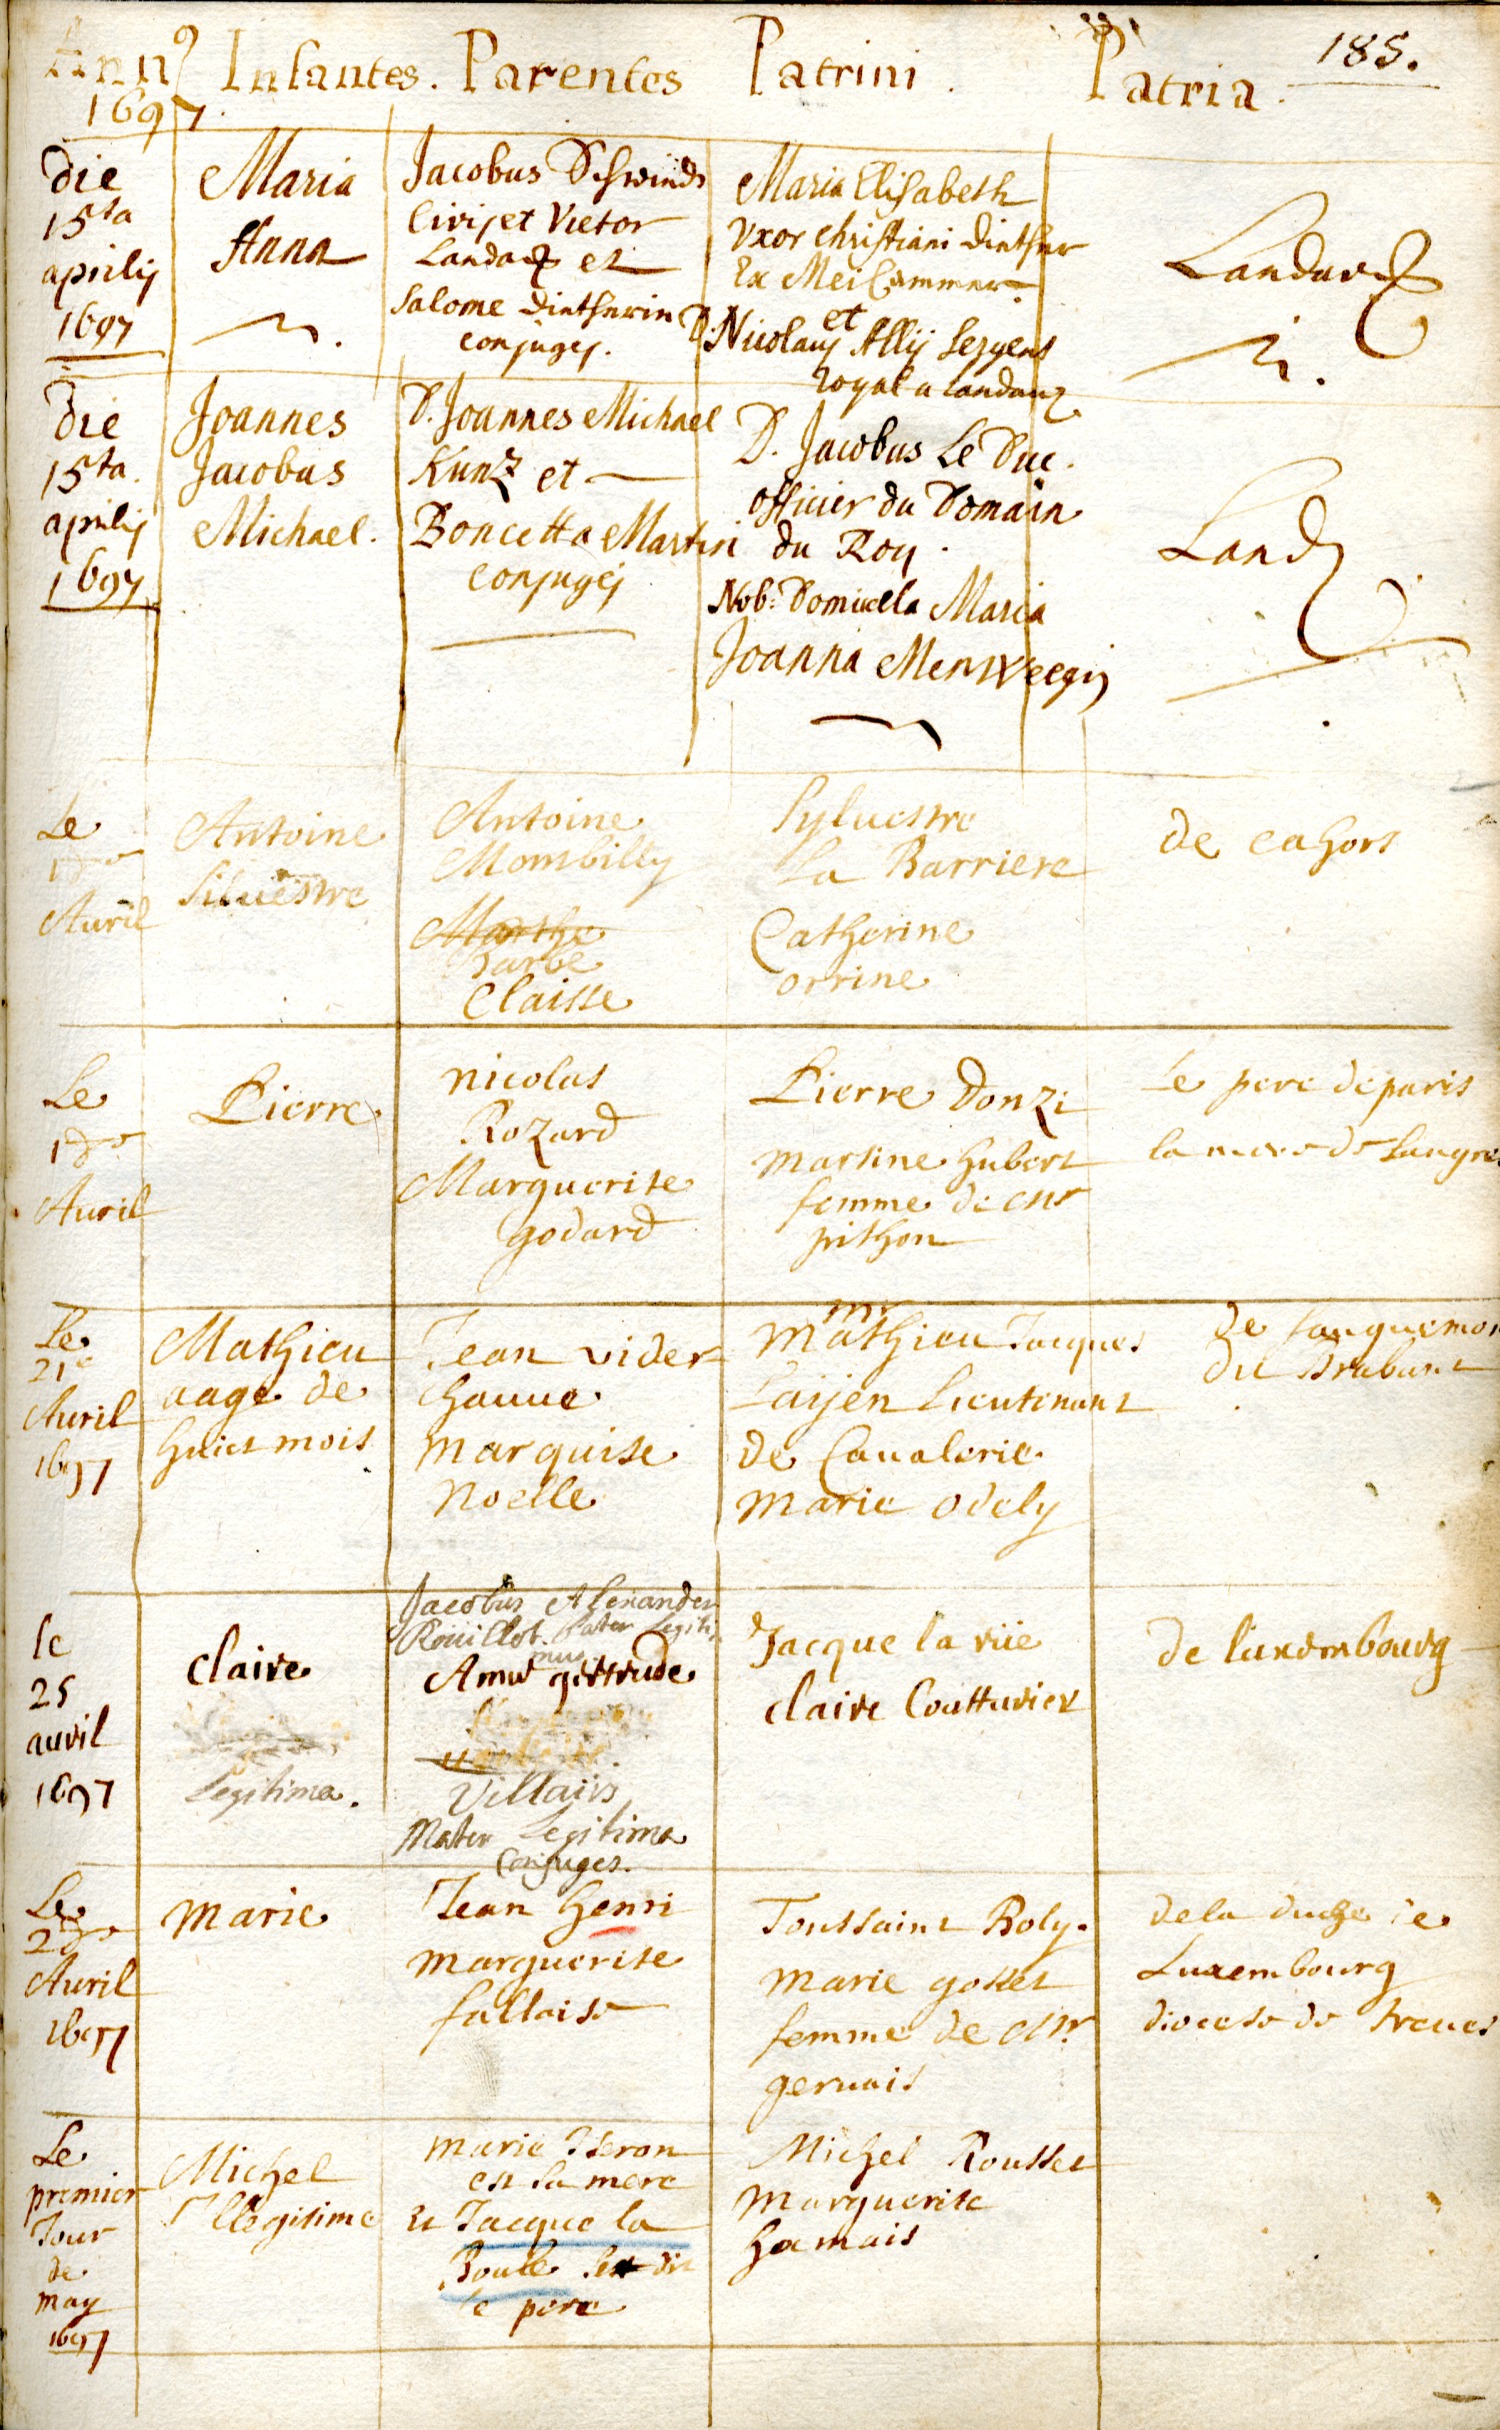 185.
Anno Infantes. Parentes Patrini. Patria.
1697.
Die
15ta
aprilis
1697
Maria
Anna
Jacobus Schwind
Civis et Vietor
Landav et
Salome Dietherin
conjuges.
Maria Elisabeth
Uxor Christiani Diether
Ex Mei Cammer.
et
D. Nicolaus Ally Sergens
Royal a Landau
Landav
Die
15ta.
aprilis
1697
Joannes
Jacobus
Michael.
D. Joannes Michael
Kunz et
Boncetta Martini
Conjuges
D. Jacobus Le Duc.
officier du Domain
du Roy.
Nob: Domicela Maria
Joanna Menweegin
Land
Le
Auril
Antoine
Siluestre
Antoine
Mombilly
Marthe
Barbe
Claisse
Syluestre
La Barriere
Catherine
orrine
de cahors
Le
Auril
Pierre
nicolas
Rozard
Marguerite
godard
Pierre Donzi
martine hubert
femme de mr
pithon
Le pere de paris
la mere de Langres
Le
21e
Auril
1697
Mathieu
aage de
huict mois
Jean vider
hauue
marquise
noelle
mr
mathieu Jacques
Laijen Lieutenant
de Caualerie
marie odely
de
du Brabant
le
25
auril
1697
claire
Legitima.
Jacobus Alexander
Rouillot. Pater Legiti
mus
Anne gertrude
Villaiis
Mater Legitima
Conjuges.
Jacque la vüe
claire Coutturier
de luxembourg
Le
Auril
1697
marie
Jean henri
marguerite
fallaise
Toussaint Roly.
marie gosset
femme de mr
geruais
de la duche de
Luxembourg
diocese de treues
Le
premier
Jour
de
may
1697
Michel
Illegitime
marie
est la mere
Et Jacque la
Boulle dit
le pere
Michel Rousset
marguerite
hamais